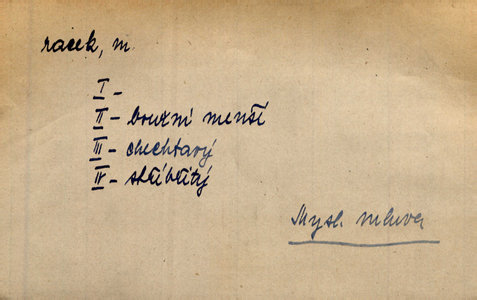 racek, m.
I -
II - bouřní menší
III - chechtavý
IV - stříbřitý
Mysl. mluva